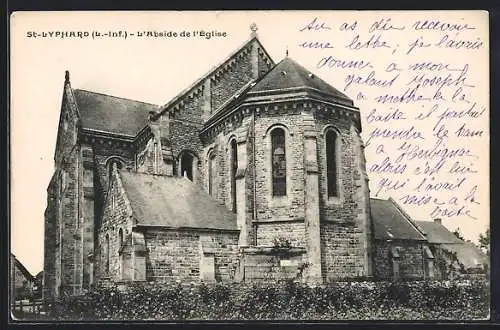 St-LYPHARD (L.-Inf.) – L'Abside de l'Église
Tu as dû recevoir
une lettre, je l'avais
donnée a mon
galant Joseph
a mettre a la
boîte il partait
prendre le tram
a Herbignac
alors c'est
qui l'avait
mise a la
boîte